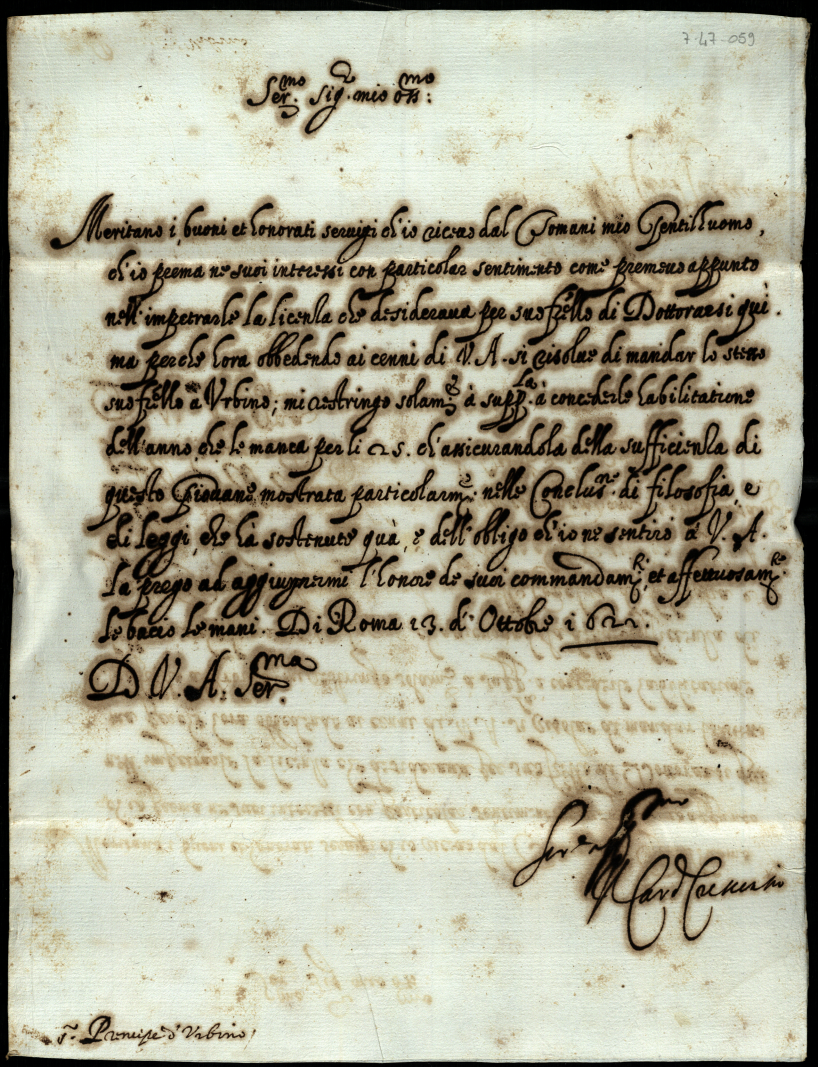 7-47-059
Ser.mo Sig.r mio oss.mo:
Meritano i buoni et honorati servigi ch'io riceuo dal Tomani mio Gentilhuomo,
ch'io prema ne suoi interessi con particolar sentimento come premeuo appunto
nell'impetrarle la licenza che desideraua per suo frello di Dottorarsi quì.
ma perche hora obbedendo ai cenni di V. A. si risolue di mandar lo stesso
suo frello à Vrbino; mi restringo solam.e à supp.la à concederle habilitatione
dell'anno che le manca per li 25. ch'assicurandola della sufficienza di
questo Giouane mostrata particolarm.e nelle Conclus.ne di filosofia, e
di leggi, che hà sostenute quà, e dell'obligo ch'io ne sentirò à V. A.
la prego ad aggiugnermi l'honore de suoi commandam.ti, et affettuosam.te
le bacio le mani. Di Roma 23. d'Ottobre 1622.
D V. A. Ser.ma
Card Crescentio
s.r Prencipe d'Vrbino